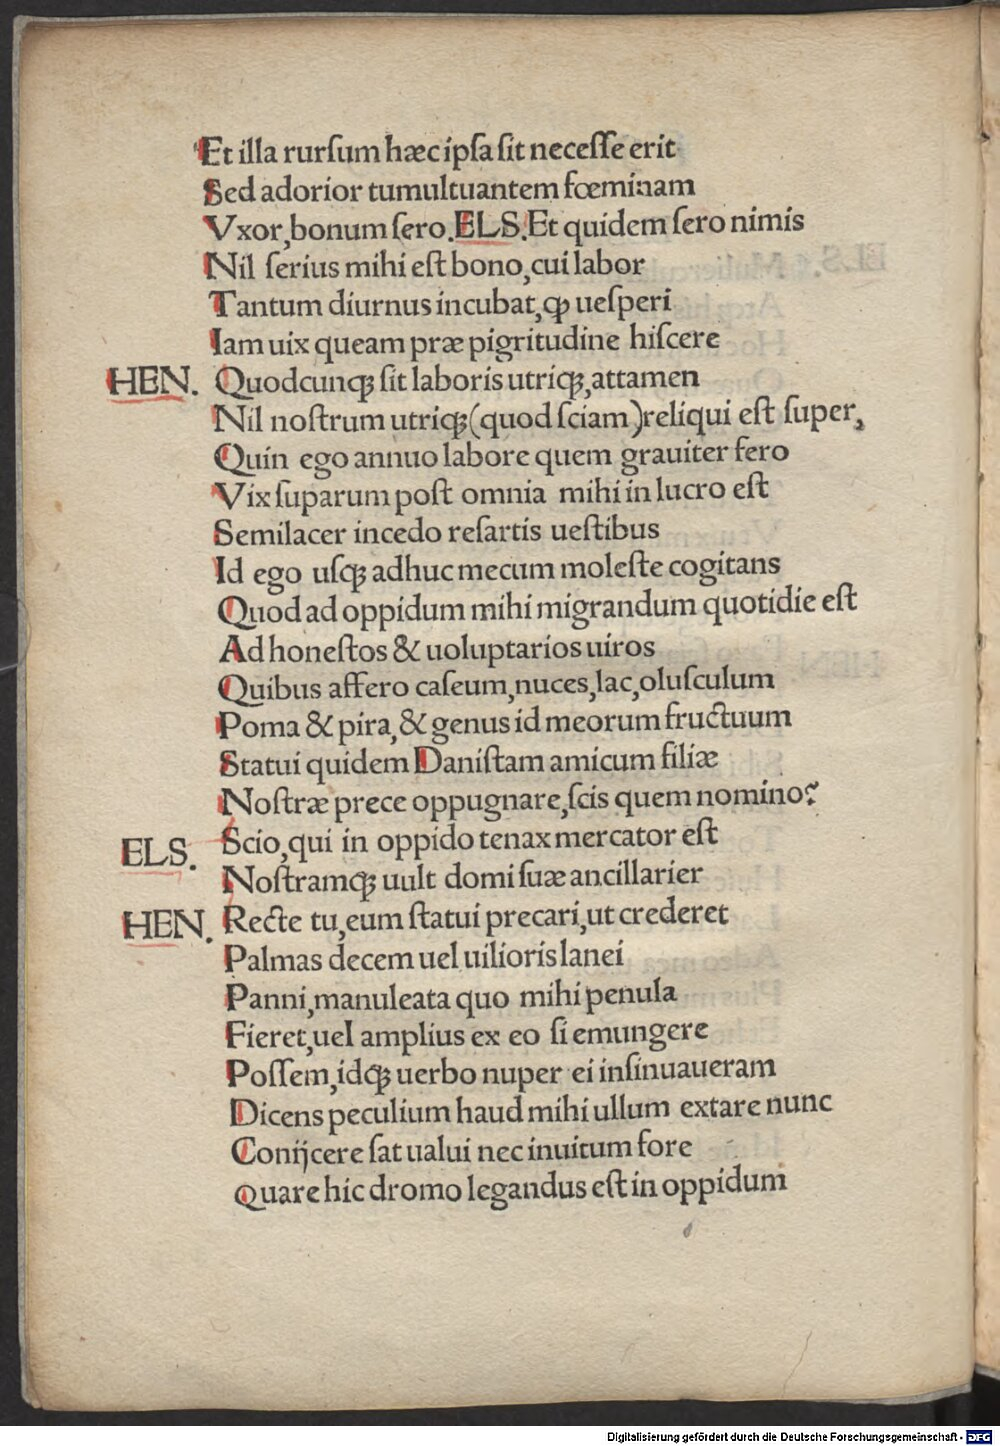 Et illa rurſum hæc ipſa ſit neceſſe erit
Sed adorior tumultuantem fœminam
Vxor,bonum ſero.ELS.Et quidem ſero nimis
Nil ſerius mihi eſt bono,cui labor
Tantum diurnus incubat,ꝙ ueſperi
Iam uix queam præ pigritudine hiſcere
HEN. Quodcunqꝫ ſit laboris utriqꝫ,attamen
Nil noſtrum utriqꝫ(quod ſciam)reliqui eſt ſuper,
Quin ego annuo labore quem grauiter fero
Vix ſuparum poſt omnia mihi in lucro eſt
Semilacer incedo reſartis ueſtibus
Id ego uſqꝫ adhuc mecum moleſte cogitans
Quod ad oppidum mihi migrandum quotidie eſt
Ad honeſtos & uoluptarios uiros
Quibus affero caſeum,nuces,lac,oluſculum
Poma & pira,& genus id meorum fructuum
Statui quidem Daniſtam amicum filiæ
Noſtræ prece oppugnare,ſcis quem nomino?
ELS. Scio,qui in oppido tenax mercator eſt
Noſtramqꝫ uult domi ſuæ ancillarier
HEN. Recte tu,eum ſtatui precari,ut crederet
Palmas decem uel uilioris lanei
Panni,manuleata quo mihi penula
Fieret,uel amplius ex eo ſi emungere
Poſſem,idqꝫ uerbo nuper ei inſinuaueram
Dicens peculium haud mihi ullum extare nunc
Conijcere ſat ualui nec inuitum fore
Quare hic dromo legandus eſt in oppidum
Digitalisierung gefördert durch die Deutsche Forschungsgemeinschaft - DFG